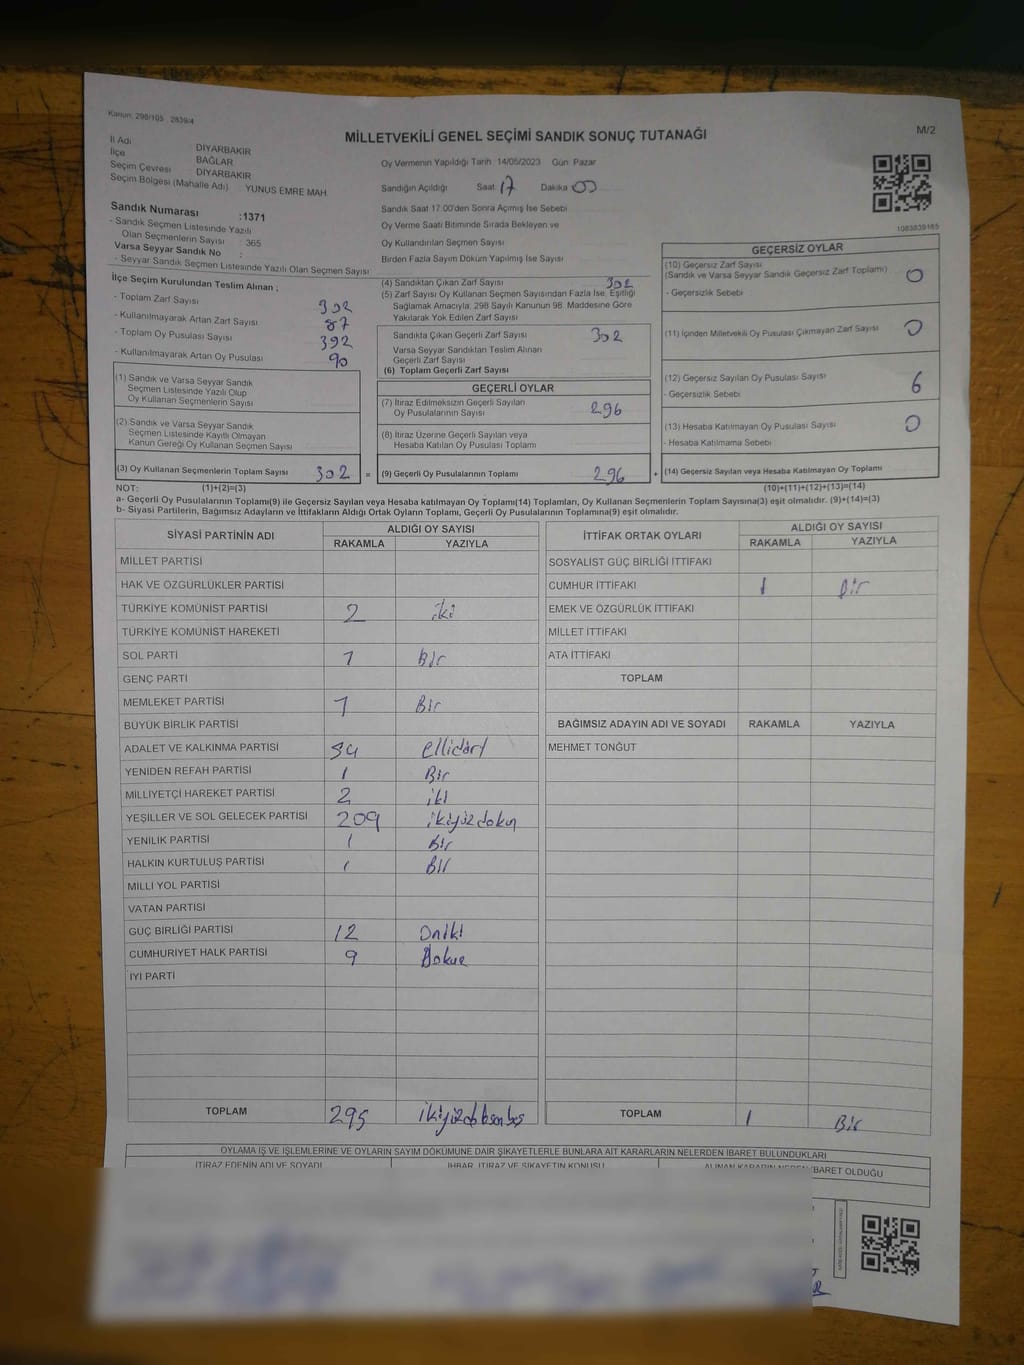 Kanun: 298/105 2839/4
MİLLETVEKİLİ GENEL SEÇİMİ SANDIK SONUÇ TUTANAĞI
M/2
İl Adı DİYARBAKIR
İlçe BAĞLAR
Seçim Çevresi DİYARBAKIR
Seçim Bölgesi (Mahalle Adı) YUNUS EMRE MAH.
Sandık Numarası :1371
- Sandık Seçmen Listesinde Yazılı
Olan Seçmenlerin Sayısı : 365
Varsa Seyyar Sandık No :
- Seyyar Sandık Seçmen Listesinde Yazılı Olan Seçmen Sayısı
Oy Vermenin Yapıldığı Tarih: 14/05/2023 Gün: Pazar
Sandığın Açıldığı Saat 17 Dakika 00
Sandık Saat 17:00'den Sonra Açımış İse Sebebi
Oy Verme Saati Bitiminde Sırada Bekleyen ve
Oy Kullandırılan Seçmen Sayısı
Birden Fazla Sayım Döküm Yapılmış İse Sayısı
1083839165
İlçe Seçim Kurulundan Teslim Alınan ;
- Toplam Zarf Sayısı 392
- Kullanılmayarak Artan Zarf Sayısı 87
- Toplam Oy Pusulası Sayısı 392
- Kullanılmayarak Artan Oy Pusulası 90
(1) Sandık ve Varsa Seyyar Sandık
Seçmen Listesinde Yazılı Olup
Oy Kullanan Seçmenlerin Sayısı
(2) Sandık ve Varsa Seyyar Sandık
Seçmen Listesinde Kayıtlı Olmayan
Kanun Gereği Oy Kullanan Seçmen Sayısı
(3) Oy Kullanan Seçmenlerin Toplam Sayısı 302 =
(4) Sandıktan Çıkan Zarf Sayısı 302
(5) Zarf Sayısı Oy Kullanan Seçmen Sayısından Fazla İse, Eşitliği
Sağlamak Amacıyla; 298 Sayılı Kanunun 98. Maddesine Göre
Yakılarak Yok Edilen Zarf Sayısı
Sandıkta Çıkan Geçerli Zarf Sayısı 302
Varsa Seyyar Sandıktan Teslim Alınan
Geçerli Zarf Sayısı
(6) Toplam Geçerli Zarf Sayısı
GEÇERLİ OYLAR
(7) İtiraz Edilmeksizin Geçerli Sayılan
Oy Pusulalarının Sayısı 296
(8) İtiraz Üzerine Geçerli Sayılan veya
Hesaba Katılan Oy Pusulası Toplamı
(9) Geçerli Oy Pusulalarının Toplamı 296 +
GEÇERSİZ OYLAR
(10) Geçersiz Zarf Sayısı
(Sandık ve Varsa Seyyar Sandık Geçersiz Zarf Toplamı) 0
- Geçersizlik Sebebi
(11) İçinden Milletvekili Oy Pusulası Çıkmayan Zarf Sayısı 0
(12) Geçersiz Sayılan Oy Pusulası Sayısı 6
- Geçersizlik Sebebi
(13) Hesaba Katılmayan Oy Pusulası Sayısı 0
- Hesaba Katılmama Sebebi
(14) Geçersiz Sayılan veya Hesaba Katılmayan Oy Toplamı
NOT: (1)+(2)=(3) (10)+(11)+(12)+(13)=(14)
a- Geçerli Oy Pusulalarının Toplamı(9) ile Geçersiz Sayılan veya Hesaba katılmayan Oy Toplamı(14) Toplamları, Oy Kullanan Seçmenlerin Toplam Sayısına(3) eşit olmalıdır. (9)+(14)=(3)
b- Siyasi Partilerin, Bağımsız Adayların ve İttifakların Aldığı Ortak Oyların Toplamı, Geçerli Oy Pusulalarının Toplamına(9) eşit olmalıdır.
SİYASİ PARTİNİN ADI ALDIĞI OY SAYISI
RAKAMLA YAZIYLA
MİLLET PARTİSİ
HAK VE ÖZGÜRLÜKLER PARTİSİ
TÜRKİYE KOMÜNİST PARTİSİ 2 iki
TÜRKİYE KOMÜNİST HAREKETİ
SOL PARTİ 1 Bir
GENÇ PARTİ
MEMLEKET PARTİSİ 1 Bir
BÜYÜK BİRLİK PARTİSİ
ADALET VE KALKINMA PARTİSİ 54 ellidört
YENİDEN REFAH PARTİSİ 1 Bir
MİLLİYETÇİ HAREKET PARTİSİ 2 iki
YEŞİLLER VE SOL GELECEK PARTİSİ 209 ikiyüzdokuz
YENİLİK PARTİSİ 1 Bir
HALKIN KURTULUŞ PARTİSİ 1 Bir
MİLLİ YOL PARTİSİ
VATAN PARTİSİ
GÜÇ BİRLİĞİ PARTİSİ 12 Oniki
CUMHURİYET HALK PARTİSİ 9 Dokuz
İYİ PARTİ
TOPLAM 295
İTTİFAK ORTAK OYLARI ALDIĞI OY SAYISI
RAKAMLA YAZIYLA
SOSYALİST GÜÇ BİRLİĞİ İTTİFAKI
CUMHUR İTTİFAKI 1 Bir
EMEK VE ÖZGÜRLÜK İTTİFAKI
MİLLET İTTİFAKI
ATA İTTİFAKI
TOPLAM
BAĞIMSIZ ADAYIN ADI VE SOYADI RAKAMLA YAZIYLA
MEHMET TONĞUT
TOPLAM 1 Bir
OYLAMA İŞ VE İŞLEMLERİNE VE OYLARIN SAYIM DÖKÜMÜNE DAİR ŞİKAYETLERLE BUNLARA AİT KARARLARIN NELERDEN İBARET BULUNDUKLARI
İTİRAZ EDENİN ADI VE SOYADI İHBAR, İTİRAZ VE ŞİKAYETİN KONUSU ALINAN KARARIN NEDEN İBARET OLDUĞU